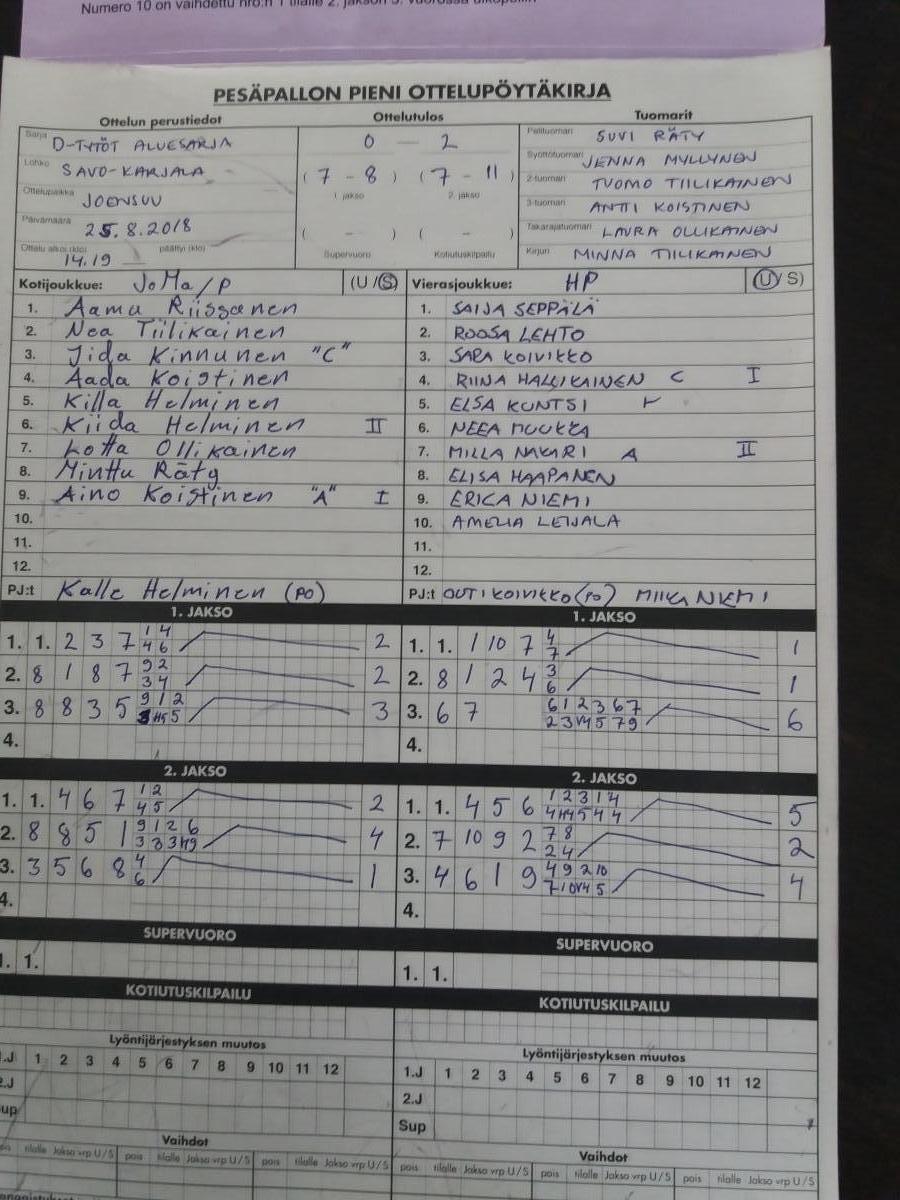 Numero 10 on vaihdettu nro:n 1 tilalle 2. jakson 3. vuorossa ulkopeliin
PESÄPALLON PIENI OTTELUPÖYTÄKIRJA
Ottelun perustiedot Ottelutulos Tuomarit
Sarja D-TYTÖT ALUESARJA 0 - 2 Pelituomari SUVI RÄTY
Lohko SAVO-KARJALA (7-8) (7-11) Syöttötuomari JENNA MYLLYNEN
Ottelupaikka JOENSUU 1. jakso 2. jakso 2-tuomari TUOMO TIILIKAINEN
3-tuomari ANTTI KOISTINEN
Päivämäärä 25.8.2018 ( - ) ( - ) Takarajatuomari LAURA OLLIKAINEN
Ottelu alkoi (klo) 14.19 päättyi (klo) Supervuoro Kotiutuskilpailu Kirjuri MINNA TIILIKAINEN
Kotijoukkue: JoMa/P (U/S) Vierasjoukkue: HP (U/S)
1. Aamu Riissanen 1. SAIJA SEPPÄLÄ
2. Nea Tiilikainen 2. ROOSA LEHTO
3. Iida Kinnunen "C" 3. SARA KOIVIKKO
4. Aada Koistinen 4. RIINA HALLIKAINEN C I
5. Killa Helminen 5. ELSA KUNTSI
6. Kiida Helminen II 6. NEEA MUUKKA
7. Lotta Ollikainen 7. MILLA NAKARI A II
8. Minttu Räty 8. ELISA HAAPANEN
9. Aino Koistinen "A" I 9. ERICA NIEMI
10. 10. AMELIA LEIJALA
11. 11.
12. 12.
PJ:t Kalle Helminen (PO) PJ:t OUTI KOIVIKKO (PO) MIIKA NIEMI
1. JAKSO 1. JAKSO
1. 1. 2 3 7 1 4 2 1. 1. 1 10 7 4 1
4 6 7
2. 8 1 8 7 9 2 2 2. 8 1 2 4 3 1
3 4 6
3. 8 8 3 5 9 1 2 3 3. 6 7 6 1 2 3 6 7 6
4. 4.
2. JAKSO 2. JAKSO
1. 1. 4 6 7 1 2 2 1. 1. 4 5 6 1 2 3 1 4 5
4 5
2. 8 8 5 1 9 1 2 6 4 2. 7 10 9 2 7 8 2
2 4
3. 3 5 6 8 4 1 3. 4 6 1 9 4 9 2 10 4
6
4. 4.
SUPERVUORO SUPERVUORO
1. 1. 1. 1.
KOTIUTUSKILPAILU KOTIUTUSKILPAILU
Lyöntijärjestyksen muutos Lyöntijärjestyksen muutos
1.J 1 2 3 4 5 6 7 8 9 10 11 12 1.J 1 2 3 4 5 6 7 8 9 10 11 12
2.J 2.J
Sup Sup
Vaihdot Vaihdot
pois tilalle Jakso vrp U/S pois tilalle Jakso vrp U/S pois tilalle Jakso vrp U/S pois tilalle Jakso vrp U/S pois tilalle Jakso vrp U/S pois tilalle Jakso vrp U/S